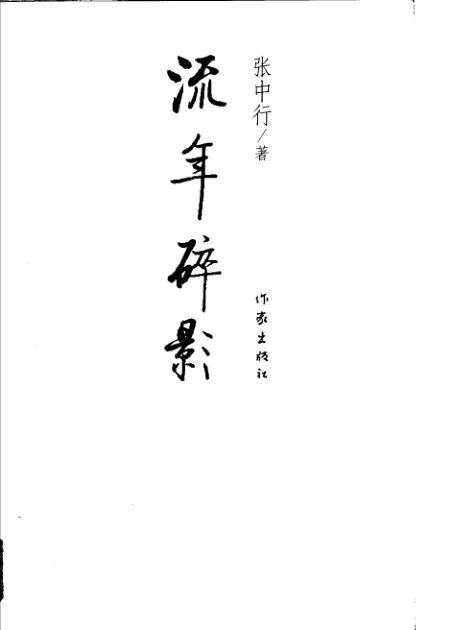 张中行/著
流年碎影
作家出版社